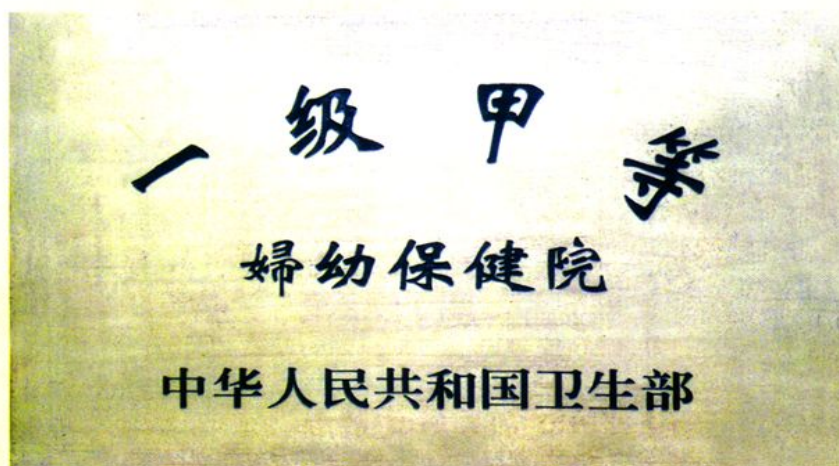 一级甲等
婦幼保健院
中华人民共和国卫生部